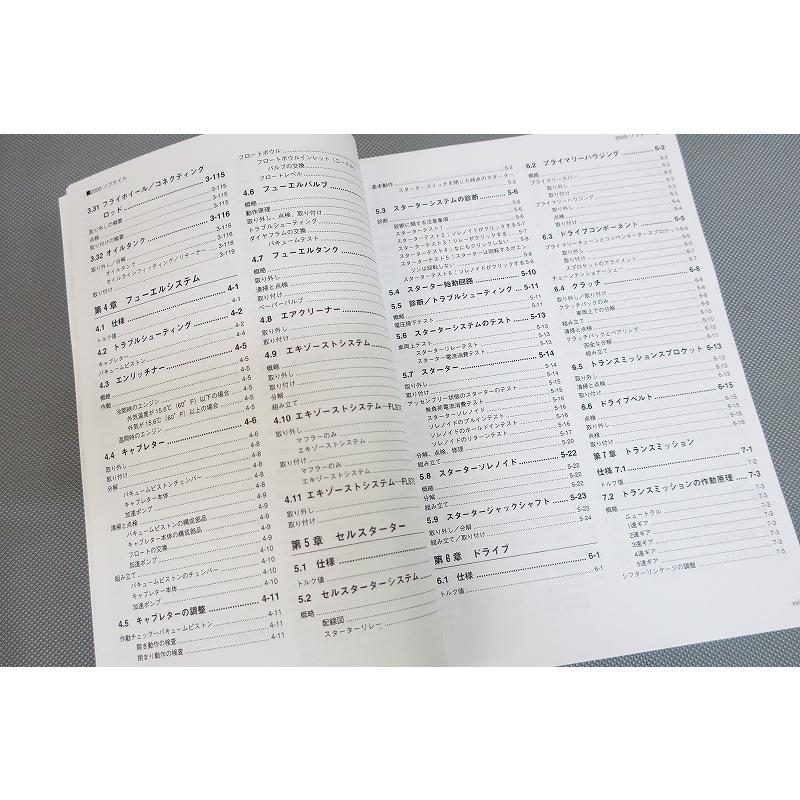 ■2000-ソフテイル
3.31 フライホイール／コネクティング
ロッド 3-115
取り外しの概要 3-115
点検 3-115
取り付けの概要 3-115
3.32 オイルタンク 3-116
取り外し／分解 3-116
オイルタンク 3-116
オイルラインフィッティング／リテーナー 3-118
取り付け 3-119
第4章 フューエルシステム
4.1 仕様 4-1
トルク値 4-1
4.2 トラブルシューティング 4-2
キャブレター 4-2
バキュームピストン 4-4
4.3 エンリッチナー 4-5
概略 4-5
作動 4-5
冷間時のエンジン
外気温度が 15.6℃（60°F）以下の場合 4-5
外気が 15.6℃（60°F）以上の場合 4-5
温間時のエンジン 4-5
4.4 キャブレター 4-6
取り外し 4-6
取り付け 4-6
分解 4-8
バキュームピストンチェンバー 4-8
キャブレター本体 4-8
加速ポンプ 4-9
清掃と点検 4-9
バキュームピストンの構成部品 4-9
キャブレター本体の構成部品 4-9
フロートの交換 4-10
加速ポンプ 4-10
組み立て 4-10
バキュームピストンのチェンバー 4-10
キャブレター本体 4-10
加速ポンプ 4-10
4.5 キャブレターの調整 4-11
作動チェックーバキュームピストン 4-11
開き動作の検査 4-11
閉まり動作の検査 4-11
フロートボウル
フロートボウルインレット（ニードル）
バルブの交換
フロートレベル
4.6 フューエルバルブ
概略
動作原理
取り外し、点検、取り付け
トラブルシューティング
ダイヤフラムの交換
バキュームテスト
4.7 フューエルタンク
概略
取り外し
清掃と点検
取り付け
ベーパーバルブ
4.8 エアクリーナー
取り外し
取り付け
4.9 エキゾーストシステム
概略
取り外し
取り付け
分解
組み立て
4.10 エキゾーストシステム—FLST
取り外し
マフラーのみ
エキゾーストシステム
取り付け
マフラーのみ
エキゾーストシステム
4.11 エキゾーストシステム—FLST
取り外し
取り付け
第5章 セルスターター
5.1 仕様
トルク値
5.2 セルスターターシステム
概略
配線図
スターターリレー
基本動作 5-2
スタータースイッチを閉じた時点のスターター 5-5
5.3 スターターシステムの診断 5-6
診断
診断に関する注意事項
スターターテスト1
スターターテスト2：ソレノイドがクリックする 5-7
スターターテスト3：リレーがクリックする
スターターテスト4：なにもクリックしない
スターターテスト5：スターターは回転するがエン
ジンは回転しない
スターターテスト6：ソレノイドがクリックする 5-9
5.4 スターター始動回路 5-10
5.5 診断／トラブルシューティング 5-11
概略 5-11
電圧降下テスト 5-11
5.6 スターターシステムのテスト 5-13
車両上テスト 5-13
スターターリレーテスト 5-13
スターター電流消費テスト 5-13
5.7 スターター 5-14
取り外し 5-14
取り付け 5-15
アッセンブリー状態のスターターのテスト 5-15
無負荷電流消費テスト 5-15
スターターソレノイド 5-16
ソレノイドのプルインテスト 5-16
ソレノイドのホールドインテスト 5-16
ソレノイドのリターンテスト 5-16
分解、点検、修理 5-17
組み立て 5-20
5.8 スターターソレノイド 5-22
概略 5-22
分解 5-22
組み立て 5-22
5.9 スタータージャックシャフト 5-23
取り外し／分解 5-23
組み立て／取り付け 5-24
第6章 ドライブ
6.1 仕様 6-1
トルク値 6-1
6.2 プライマリーハウジング 6-2
概略 6-2
プライマリーカバー 6-2
取り外し 6-2
取り付け 6-2
プライマリーハウジング
取り外し
点検 6-4
取り付け 6-4
6.3 ドライブコンポーネント 6-5
プライマリーチェーンとコンペンセータースプロケット 6-5
取り外し
取り付け
スプロケットのアライメント
チェーンテンショナーシュー
6.4 クラッチ 6-8
取り外し／取り付け 6-8
クラッチパックのみ
車両上での分解
組み立て
清掃と点検
クラッチハブとベアリング
完全な分解
組み立て
6.5 トランスミッションスプロケット 6-13
取り外し 6-13
清掃と点検 6-13
取り付け 6-13
6.6 ドライブベルト 6-15
取り外し 6-15
点検 6-15
取り付け 6-15
第7章 トランスミッション
仕様 7.1 7-1
トルク値 7-2
7.2 トランスミッションの作動原理 7-3
概略 7-3
ニュートラル 7-3
1速ギア 7-3
2速ギア 7-3
3速ギア 7-3
4速ギア 7-3
5速ギア 7-3
シフターリンケージの調整 7-5